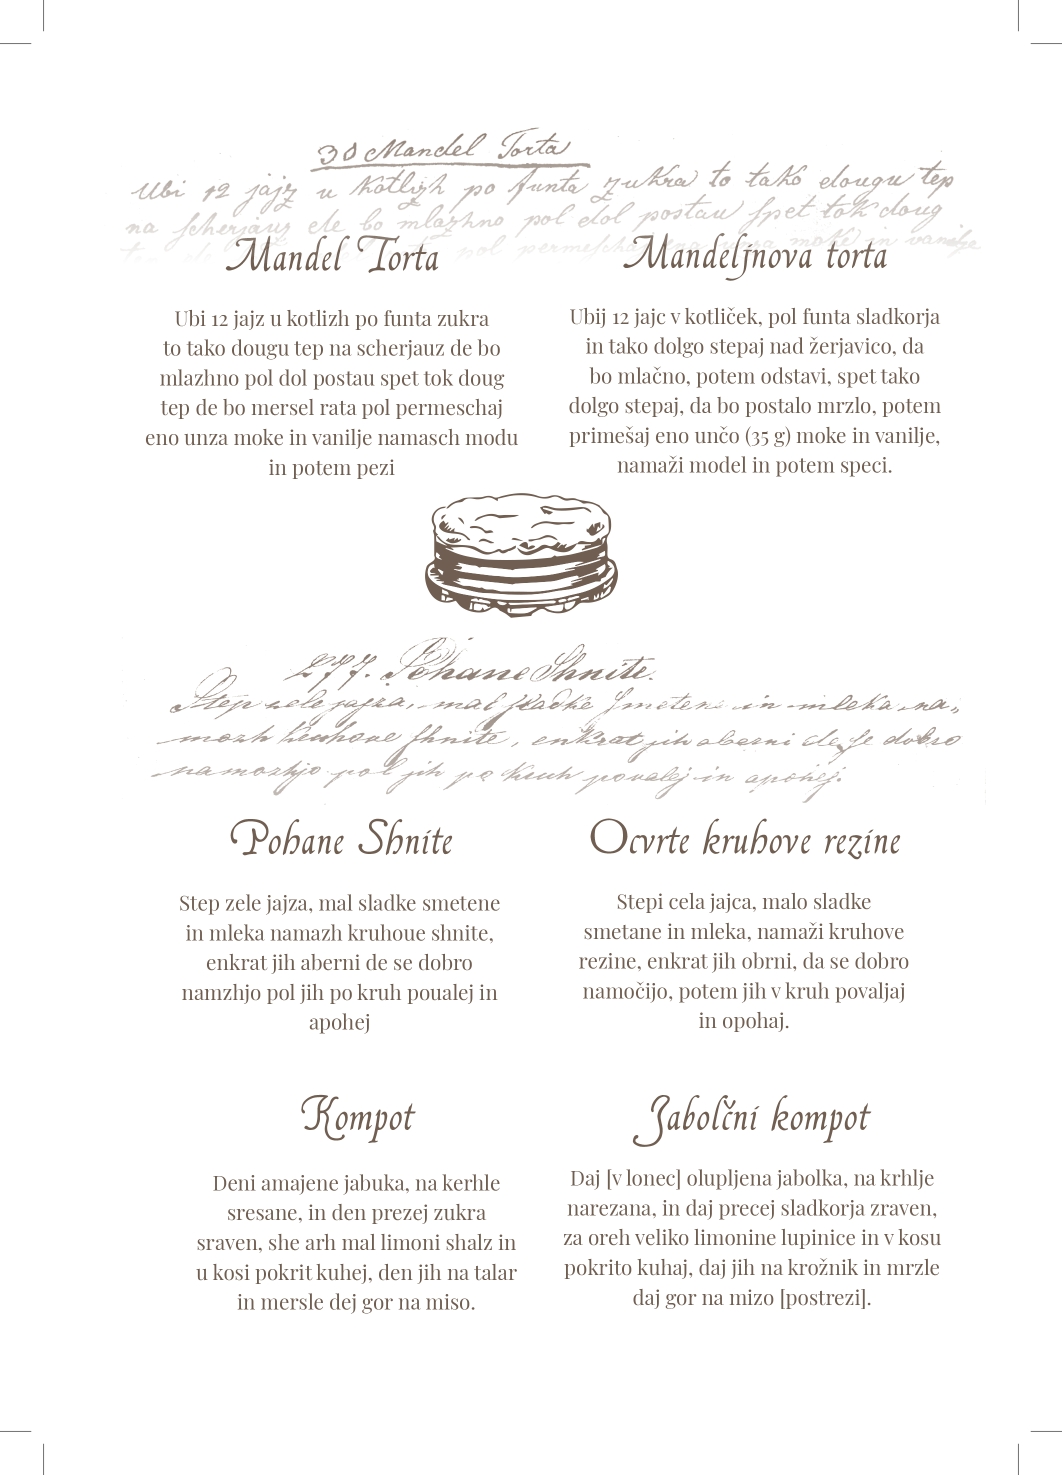 30 Mandel Torta
Ubi 12 jajz u kotlizh po funta zukra to tako dougu tep
na scherjauz de bo mlazhno pol dol postau spet tok doug
pol permeschaj ena unza moke in vanilje
Mandel Torta
Ubi 12 jajz u kotlizh po funta zukra
to tako dougu tep na scherjauz de bo
mlazhno pol dol postau spet tok doug
tep de bo mersel rata pol permeschaj
eno unza moke in vanilje namasch modu
in potem pezi
Mandeljnova torta
Ubij 12 jajc v kotliček, pol funta sladkorja
in tako dolgo stepaj nad žerjavico, da
bo mlačno, potem odstavi, spet tako
dolgo stepaj, da bo postalo mrzlo, potem
primešaj eno unčo (35 g) moke in vanilje,
namaži model in potem speci.
277. Pohane Shnite.
Step zele jajza, mal sladke smetene in mleka na-
mazh kruhove shnite, enkrat jih aberni de se dobro
namozhjo pol jih po kruh povalej in apohej.
Pohane Shnite
Step zele jajza, mal sladke smetene
in mleka namazh kruhoue shnite,
enkrat jih aberni de se dobro
namzhjo pol jih po kruh poualej in
apohej
Ocvrte kruhove rezine
Stepi cela jajca, malo sladke
smetane in mleka, namaži kruhove
rezine, enkrat jih obrni, da se dobro
namočijo, potem jih v kruh povaljaj
in opohaj.
Kompot
Deni amajene jabuka, na kerhle
sresane, in den prezej zukra
sraven, she arh mal limoni shalz in
u kosi pokrit kuhej, den jih na talar
in mersle dej gor na miso.
Jabolčni kompot
Daj [v lonec] olupljena jabolka, na krhlje
narezana, in daj precej sladkorja zraven,
za oreh veliko limonine lupinice in v kosu
pokrito kuhaj, daj jih na krožnik in mrzle
daj gor na mizo [postrezi].